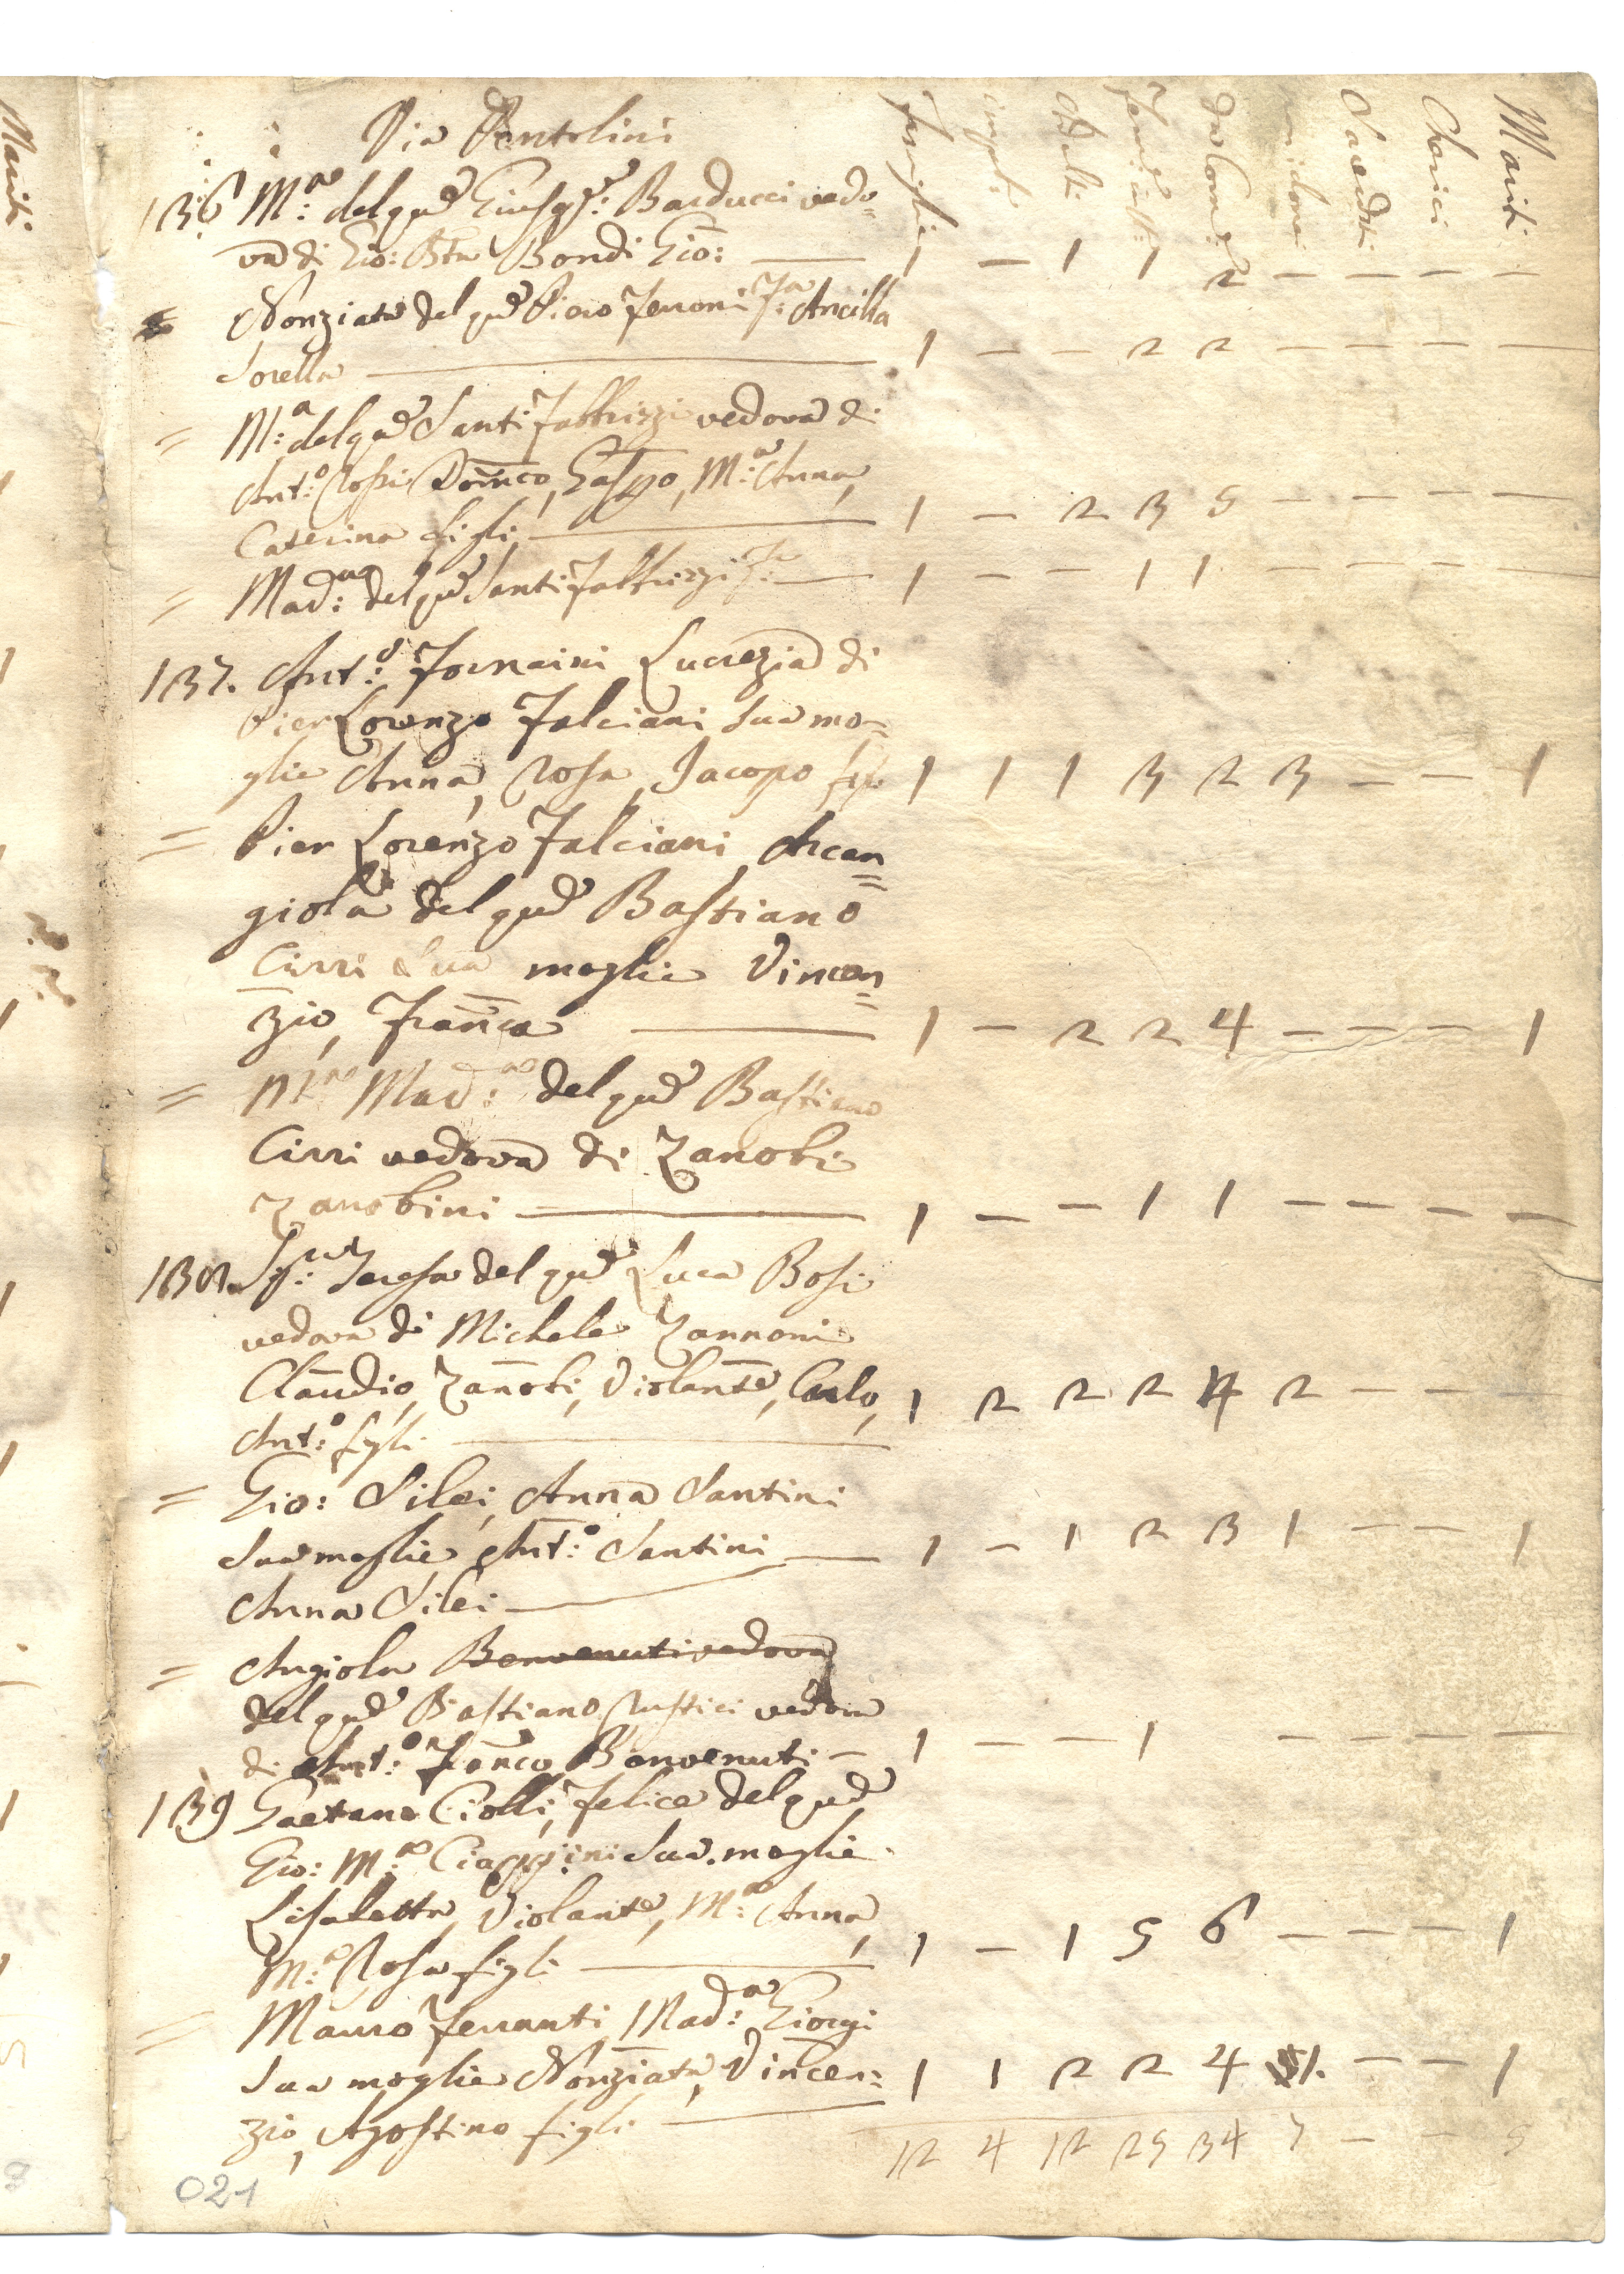 Via Pentolini
Famiglie Impub: Adulti Femine: Da Com: Sacerdoti Cherici Mariti
136 M:ª del qud Giusppe: Barducci vedo=
va di Gio: Bta Bondi Gio: — 1 — 1 1 2 — — — —
= Nonziata del qud Piero Ferroni Fa: Ancilla
Sorella — 1 — — 2 2 — — — —
= M:ª del qud Santi Fabbrizzi vedova di
Ant:º Rossi Domco, Gaspo, M:ª Anna,
Caterina figli — 1 — 2 3 5 — — — —
= Mad:na del qud Santi Fabbrizzi Fa: — 1 — — 1 1 — — — —
137. Ant:º Fornaini Lucrezia di
Pier Lorenzo Falciani sua mo=
glie Anna, Rosa, Jacopo figli 1 1 1 3 2 3 — — 1
= Pier Lorenzo Falciani Arcan=
giola del qud Bastiano
Cirri Sua moglie Vincen=
zio, Franca — 1 — 2 2 4 — — — 1
= Mª Mad:ª del qud Bastiano
Cirri vedova di Zanobi
Zanobini — 1 — — 1 1 — — — —
138. Sig:ra Teresa del qud Luca Bosi
vedova di Michele Zannoni
Claudio, Zanobi, Violante, Carlo, 1 2 2 2 4 2 — — —
Ant:º figli —
= Gio: Silei, Anna Santini
Sua moglie, Ant:º Santini — 1 — 1 2 3 1 — — 1
Anna Silei —
= Angiola Benvenuti vedova
del qud Bastiano Rustici vedova
di Ant:º Franco Benvenuti — 1 — — 1 — — — —
139 Gaetano Ciolli, Felice del qud
Gio: M:ª Ciappini Sua moglie
Lisabetta, Violante, M:ª Anna,
M:ª Rosa figli — 1 — 1 5 6 — — — 1
= Mauro Ferranti, Mad:ª Giorgi
Sua moglie Nonziata, Vincen=
zio, Agostino figli — 1 1 2 2 4 1. — — 1
12 4 12 25 34 7 — — 5
021
Mariti